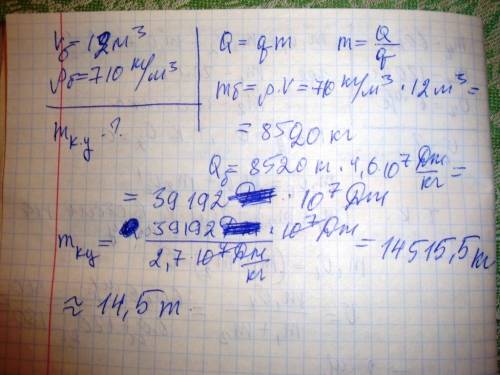 Vб = 12 м³
ρб = 710 кг/м³
mк.у ?
Q = qm m = Q/q
mб = ρ·V = 710 кг/м³ · 12 м³ =
= 8520 кг
Qб = 8520 кг · 4,6·10⁷ Дж/кг =
= 39192 · 10⁷ Дж
mку = 39192 · 10⁷ Дж / 2,7·10⁷ Дж/кг = 14515,5 кг
≈ 14,5 т.